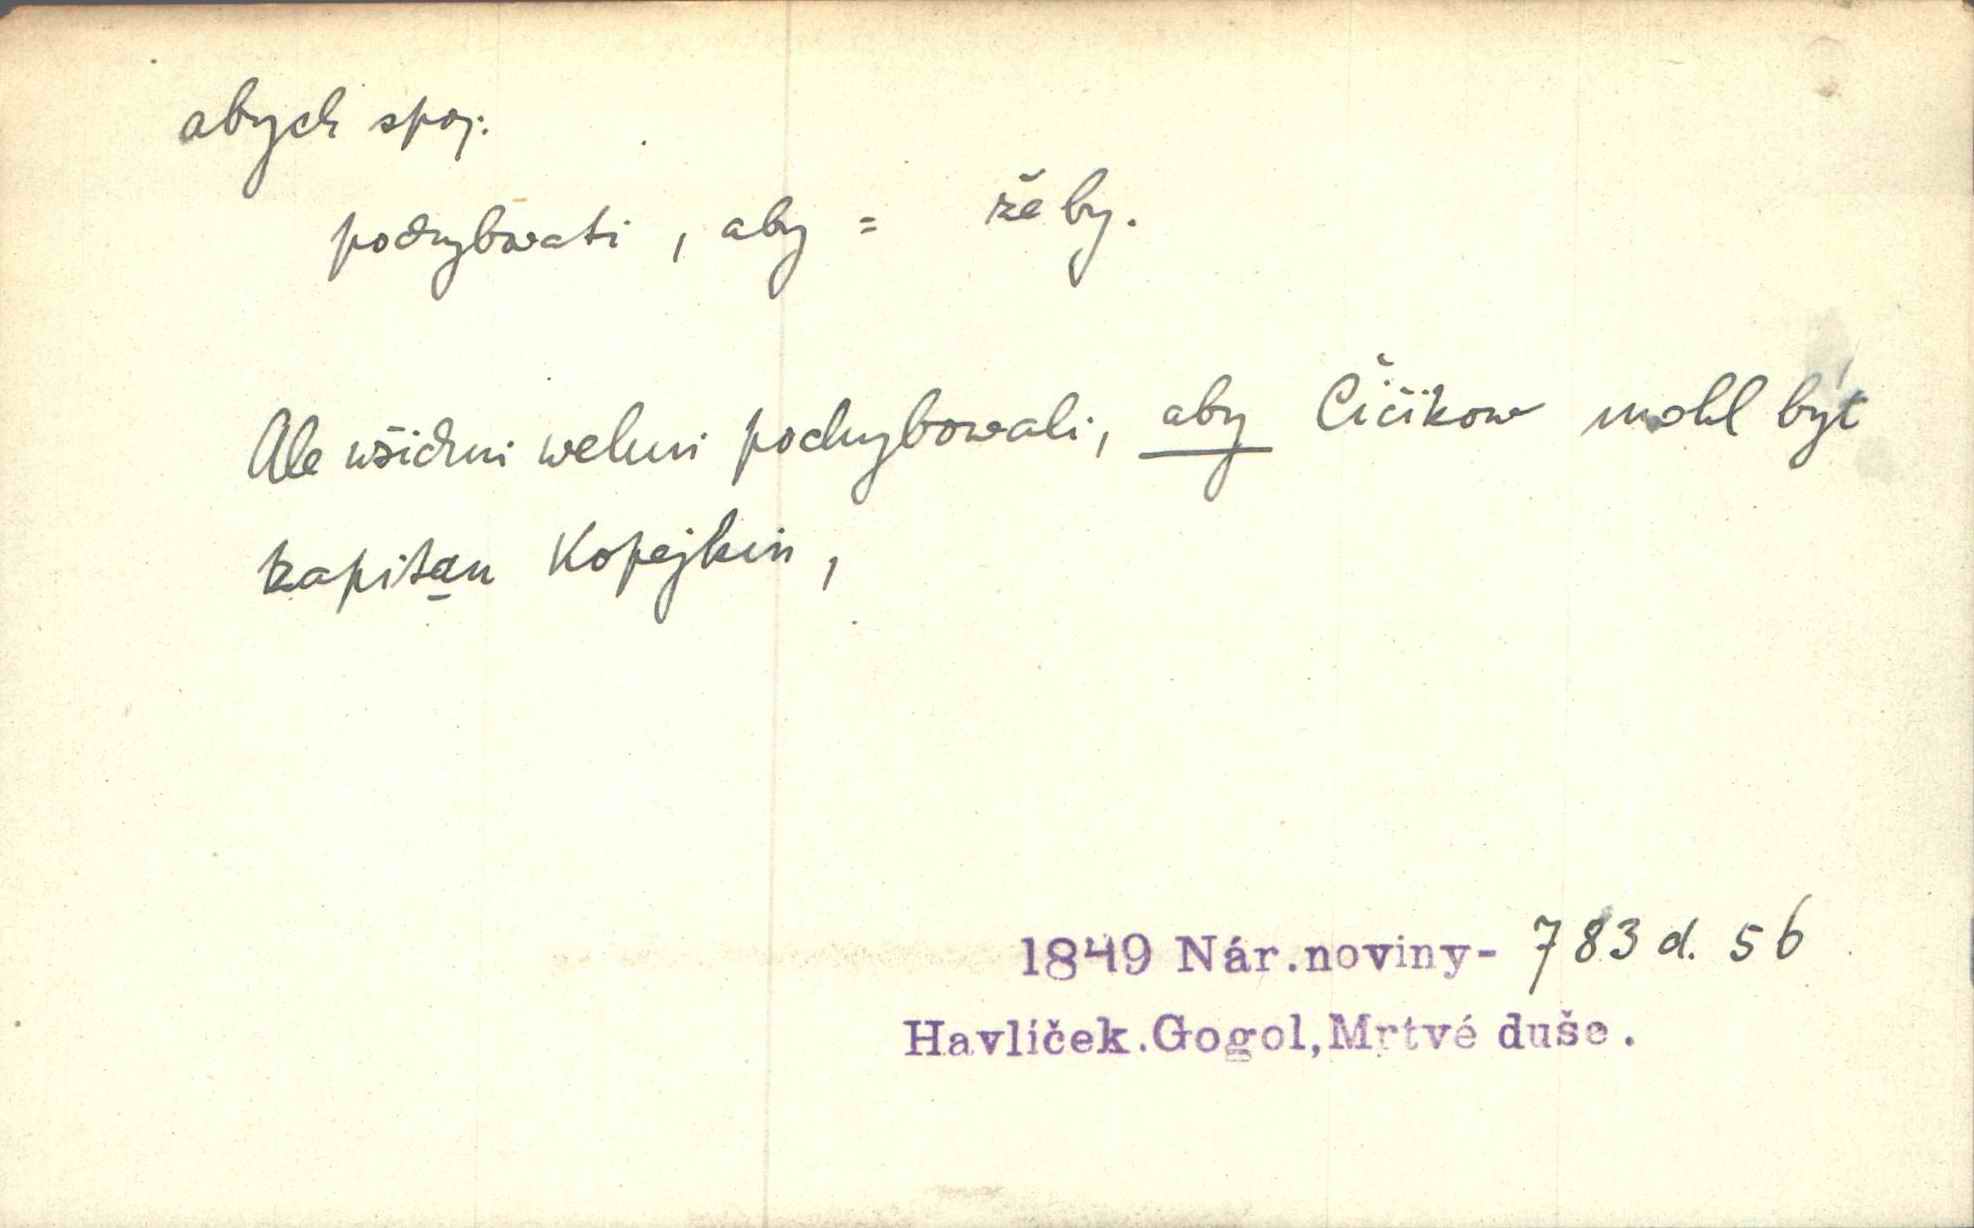 abych spoj.
pochybovati, aby = že by.
Ale wšichni welmi pochybowali, aby Čičikow mohl být
kapitan Kopejkin,
1849 Nár.noviny- 783 d. 56
Havlíček.Gogol,Mrtvé duše.